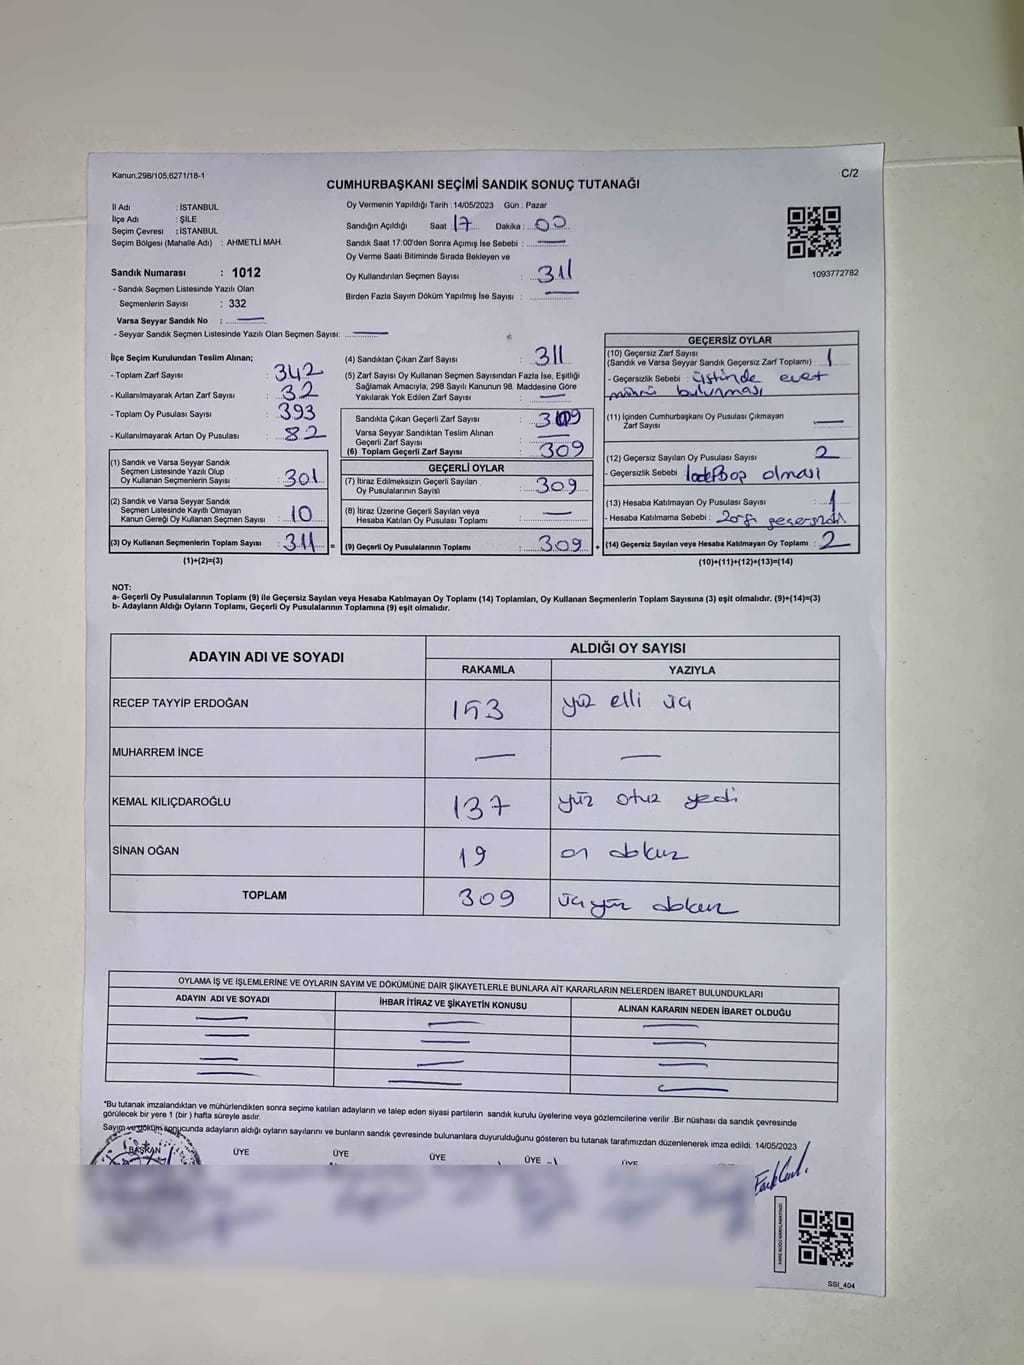 Kanun,298/105,6271/18-1
C/2
CUMHURBAŞKANI SEÇİMİ SANDIK SONUÇ TUTANAĞI
İl Adı : İSTANBUL
İlçe Adı : ŞİLE
Seçim Çevresi : İSTANBUL
Seçim Bölgesi (Mahalle Adı) : AHMETLİ MAH.
Sandık Numarası : 1012
- Sandık Seçmen Listesinde Yazılı Olan
Seçmenlerin Sayısı : 332
Varsa Seyyar Sandık No : —
- Seyyar Sandık Seçmen Listesinde Yazılı Olan Seçmen Sayısı: —
Oy Vermenin Yapıldığı Tarih : 14/05/2023 Gün : Pazar
Sandığın Açıldığı Saat : 17 Dakika : 00
Sandık Saat 17:00'den Sonra Açımış İse Sebebi : —
Oy Verme Saati Bitiminde Sırada Bekleyen ve
Oy Kullandırılan Seçmen Sayısı : 311
Birden Fazla Sayım Döküm Yapılmış İse Sayısı : —
1093772782
İlçe Seçim Kurulundan Teslim Alınan;
- Toplam Zarf Sayısı : 342
- Kullanılmayarak Artan Zarf Sayısı : 32
- Toplam Oy Pusulası Sayısı : 393
- Kullanılmayarak Artan Oy Pusulası : 82
(1) Sandık ve Varsa Seyyar Sandık
Seçmen Listesinde Yazılı Olup
Oy Kullanan Seçmenlerin Sayısı : 301
(2) Sandık ve Varsa Seyyar Sandık
Seçmen Listesinde Kayıtlı Olmayan
Kanun Gereği Oy Kullanan Seçmen Sayısı : 10
(3) Oy Kullanan Seçmenlerin Toplam Sayısı : 311 =
(1)+(2)=(3)
(4) Sandıktan Çıkan Zarf Sayısı : 311
(5) Zarf Sayısı Oy Kullanan Seçmen Sayısından Fazla İse, Eşitliği
Sağlamak Amacıyla, 298 Sayılı Kanunun 98. Maddesine Göre
Yakılarak Yok Edilen Zarf Sayısı : —
Sandıkta Çıkan Geçerli Zarf Sayısı : 309
Varsa Seyyar Sandıktan Teslim Alınan
Geçerli Zarf Sayısı : —
(6) Toplam Geçerli Zarf Sayısı : 309
GEÇERLİ OYLAR
(7) İtiraz Edilmeksizin Geçerli Sayılan
Oy Pusulasının Sayısı : 309
(8) İtiraz Üzerine Geçerli Sayılan veya
Hesaba Katılan Oy Pusulası Toplamı : —
(9) Geçerli Oy Pusulalarının Toplamı : 309 +
GEÇERSİZ OYLAR
(10) Geçersiz Zarf Sayısı
(Sandık ve Varsa Seyyar Sandık Geçersiz Zarf Toplamı) : 1
- Geçersizlik Sebebi : üstünde evet
mührü bulunması
(11) İçinden Cumhurbaşkanı Oy Pusulası Çıkmayan
Zarf Sayısı : —
(12) Geçersiz Sayılan Oy Pusulası Sayısı : 2
- Geçersizlik Sebebi : olması
(13) Hesaba Katılmayan Oy Pusulası Sayısı : 1
- Hesaba Katılmama Sebebi : Zarfı geçersizdi
(14) Geçersiz Sayılan veya Hesaba Katılmayan Oy Toplamı : 2
(10)+(11)+(12)+(13)=(14)
NOT:
a- Geçerli Oy Pusulalarının Toplamı (9) ile Geçersiz Sayılan veya Hesaba Katılmayan Oy Toplamı (14) Toplamları, Oy Kullanan Seçmenlerin Toplam Sayısına (3) eşit olmalıdır. (9)+(14)=(3)
b- Adayların Aldığı Oyların Toplamı, Geçerli Oy Pusulalarının Toplamına (9) eşit olmalıdır.
ADAYIN ADI VE SOYADI
ALDIĞI OY SAYISI
RAKAMLA YAZIYLA
RECEP TAYYİP ERDOĞAN 153 yüz elli üç
MUHARREM İNCE — —
KEMAL KILIÇDAROĞLU 137 yüz otuz yedi
SİNAN OĞAN 19 on dokuz
TOPLAM 309 üçyüz dokuz
OYLAMA İŞ VE İŞLEMLERİNE VE OYLARIN SAYIM VE DÖKÜMÜNE DAİR ŞİKAYETLERLE BUNLARA AİT KARARLARIN NELERDEN İBARET BULUNDUKLARI
ADAYIN ADI VE SOYADI İHBAR İTİRAZ VE ŞİKAYETİN KONUSU ALINAN KARARIN NEDEN İBARET OLDUĞU
*Bu tutanak imzalandıktan ve mühürlendikten sonra seçime katılan adayların ve talep eden siyasi partilerin sandık kurulu üyelerine veya gözlemcilerine verilir .Bir nüshası da sandık çevresinde
görülecek bir yere 1 (bir ) hafta süreyle asılır.
Sayım ve döküm sonucunda adayların aldığı oyların sayılarını ve bunların sandık çevresinde bulunanlara duyurulduğunu gösteren bu tutanak tarafımızdan düzenlenerek imza edildi. 14/05/2023
BAŞKAN ÜYE ÜYE ÜYE ÜYE ÜYE
SSI_404